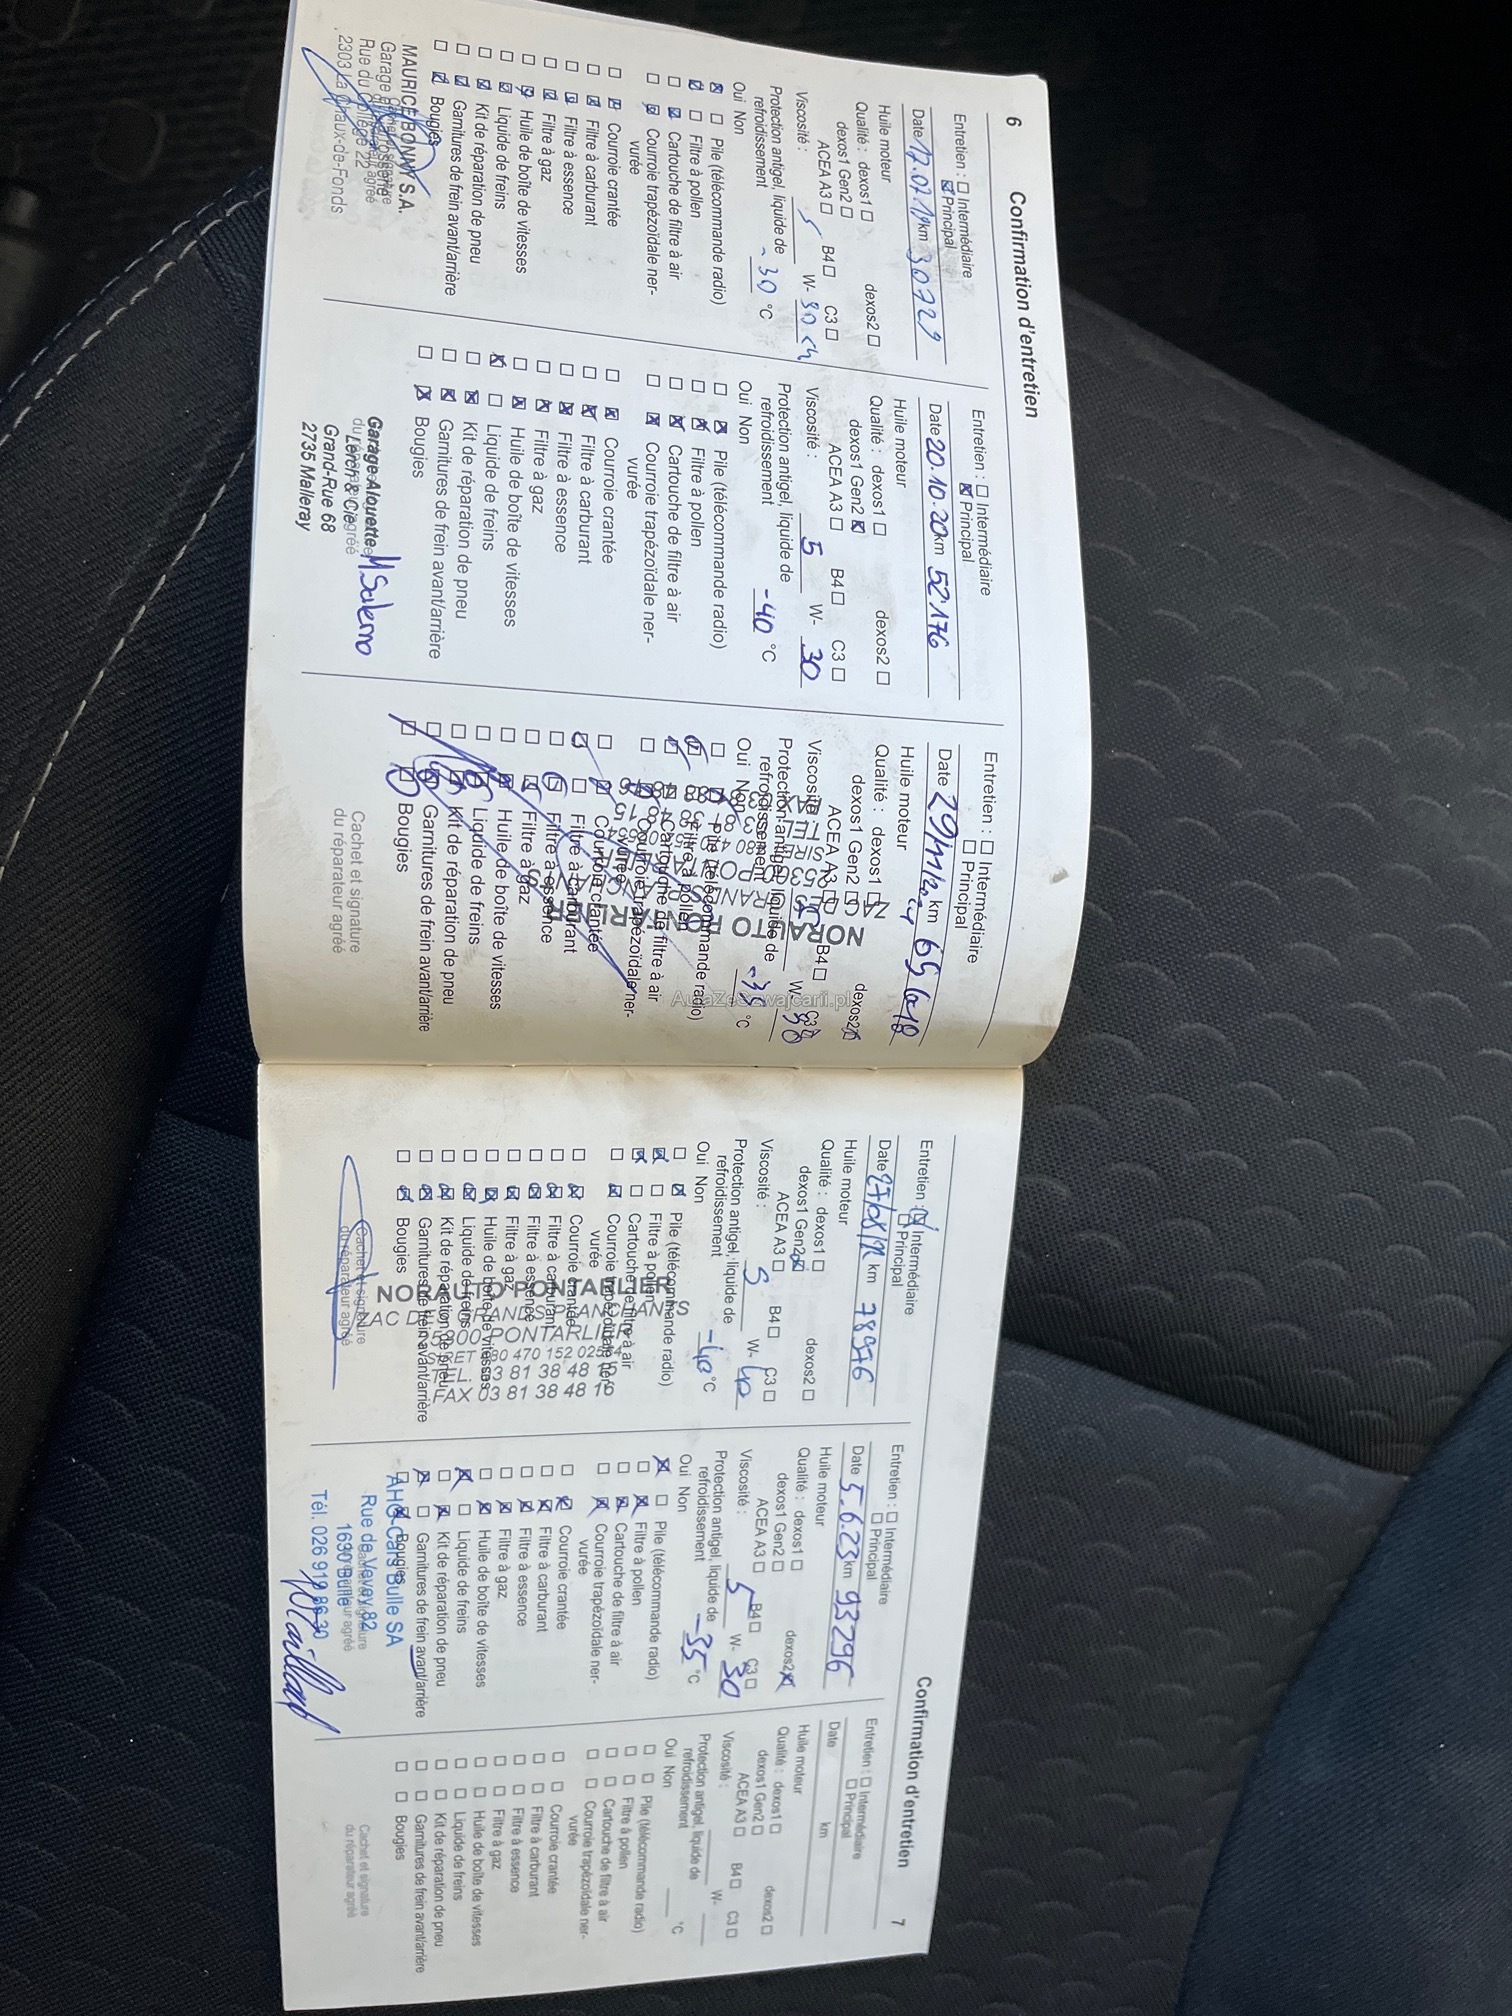 6
Confirmation d'entretien
Entretien : ☐ Intermédiaire
☒ Principal
Date 17.07.19 km 30729
Huile moteur
Qualité : dexos1 ☐ dexos2 ☐
dexos1 Gen2 ☐
ACEA A3 ☐ B4 ☐ C3 ☐
Viscosité : 5 W- 30
Protection antigel, liquide de
refroidissement -30 °C
Oui Non
☒ ☐ Pile (télécommande radio)
☒ ☐ Filtre à pollen
☐ ☒ Cartouche de filtre à air
☐ ☒ Courroie trapézoïdale ner-
vurée
☐ ☒ Courroie crantée
☐ ☒ Filtre à carburant
☐ ☒ Filtre à essence
☐ ☒ Filtre à gaz
☐ ☒ Huile de boîte de vitesses
☐ ☒ Liquide de freins
☐ ☒ Kit de réparation de pneu
☐ ☒ Garnitures de frein avant/arrière
☐ ☒ Bougies
MAURICE BONNY S.A.
Rue du Collège 22
2303 La Chaux-de-Fonds
Entretien : ☐ Intermédiaire
☒ Principal
Date 20.10.20 km 52'176
Huile moteur
Qualité : dexos1 ☐ dexos2 ☐
dexos1 Gen2 ☒
ACEA A3 ☐ B4 ☐ C3 ☐
Viscosité : 5 W- 30
Protection antigel, liquide de
refroidissement -40 °C
Oui Non
☐ ☒ Pile (télécommande radio)
☐ ☒ Filtre à pollen
☐ ☒ Cartouche de filtre à air
☐ ☒ Courroie trapézoïdale ner-
vurée
☐ ☒ Courroie crantée
☐ ☒ Filtre à carburant
☐ ☒ Filtre à essence
☐ ☒ Filtre à gaz
☐ ☒ Huile de boîte de vitesses
☒ ☐ Liquide de freins
☐ ☒ Kit de réparation de pneu
☐ ☒ Garnitures de frein avant/arrière
☐ ☒ Bougies
Garage Alouette
Lerch & Cie
Grand-Rue 68
2735 Malleray
M. Salerno
Entretien : ☐ Intermédiaire
☐ Principal
Date 29/11/ km
Huile moteur
Qualité : dexos1 ☐ dexos2 ☒
dexos1 Gen2 ☐
ACEA A3 B4 ☐ C3
Viscosité : W- 30
Protection antigel, liquide de
refroidissement -35 °C
Oui Non
Pile (télécommande radio)
Filtre à pollen
Cartouche de filtre à air
Courroie trapézoïdale ner-
vurée
Courroie crantée
Filtre à carburant
Filtre à essence
Filtre à gaz
Huile de boîte de vitesses
Liquide de freins
Kit de réparation de pneu
Garnitures de frein avant/arrière
Bougies
NORAUTO PONTARLIER
Cachet et signature
du réparateur agréé
AutaZeSzwajcarii.pl
7
Confirmation d'entretien
Entretien : ☒ Intermédiaire
☐ Principal
Date 27/08/ km 78976
Huile moteur
Qualité : dexos1 ☐ dexos2 ☐
dexos1 Gen2 ☒
ACEA A3 ☐ B4 ☐ C3 ☐
Viscosité : 5 W- 40
Protection antigel, liquide de
refroidissement -40 °C
Oui Non
☐ ☒ Pile (télécommande radio)
☒ ☐ Filtre à pollen
☒ ☐ Cartouche de filtre à air
☐ ☒ Courroie trapézoïdale ner-
vurée
☐ ☒ Courroie crantée
☐ ☒ Filtre à carburant
☐ ☒ Filtre à essence
☐ ☒ Filtre à gaz
☐ ☒ Huile de boîte de vitesses
☐ ☒ Liquide de freins
☐ ☒ Kit de réparation de pneu
☐ ☒ Garnitures de frein avant/arrière
☐ ☒ Bougies
NORAUTO PONTARLIER
ZAC DES GRANDS PLANCHANTS
PONTARLIER
TEL. 03 81 38 48
FAX 03 81 38 48 16
Cachet et signature
du réparateur agréé
Entretien : ☐ Intermédiaire
☐ Principal
Date 5.6.23 km 93296
Huile moteur
Qualité : dexos1 ☐ dexos2 ☒
dexos1 Gen2 ☐
ACEA A3 ☐ B4 ☐ C3 ☐
Viscosité : 5 W- 30
Protection antigel, liquide de
refroidissement -35 °C
Oui Non
☒ ☐ Pile (télécommande radio)
☐ ☒ Filtre à pollen
☐ ☒ Cartouche de filtre à air
☐ ☒ Courroie trapézoïdale ner-
vurée
☐ ☒ Courroie crantée
☐ ☒ Filtre à carburant
☐ ☒ Filtre à essence
☐ ☒ Filtre à gaz
☐ ☒ Huile de boîte de vitesses
☒ ☐ Liquide de freins
☐ ☒ Kit de réparation de pneu
☒ ☐ Garnitures de frein avant/arrière
☐ ☒ Bougies
AHG Cars Bulle SA
Rue de Vevey 82
1630 Bulle
Tél. 026 919 86 30
Entretien : ☐ Intermédiaire
☐ Principal
Date km
Huile moteur
Qualité : dexos1 ☐ dexos2 ☐
dexos1 Gen2 ☐
ACEA A3 ☐ B4 ☐ C3 ☐
Viscosité : W-
Protection antigel, liquide de
refroidissement °C
Oui Non
☐ ☐ Pile (télécommande radio)
☐ ☐ Filtre à pollen
☐ ☐ Cartouche de filtre à air
☐ ☐ Courroie trapézoïdale ner-
vurée
☐ ☐ Courroie crantée
☐ ☐ Filtre à carburant
☐ ☐ Filtre à essence
☐ ☐ Filtre à gaz
☐ ☐ Huile de boîte de vitesses
☐ ☐ Liquide de freins
☐ ☐ Kit de réparation de pneu
☐ ☐ Garnitures de frein avant/arrière
☐ ☐ Bougies
Cachet et signature
du réparateur agréé